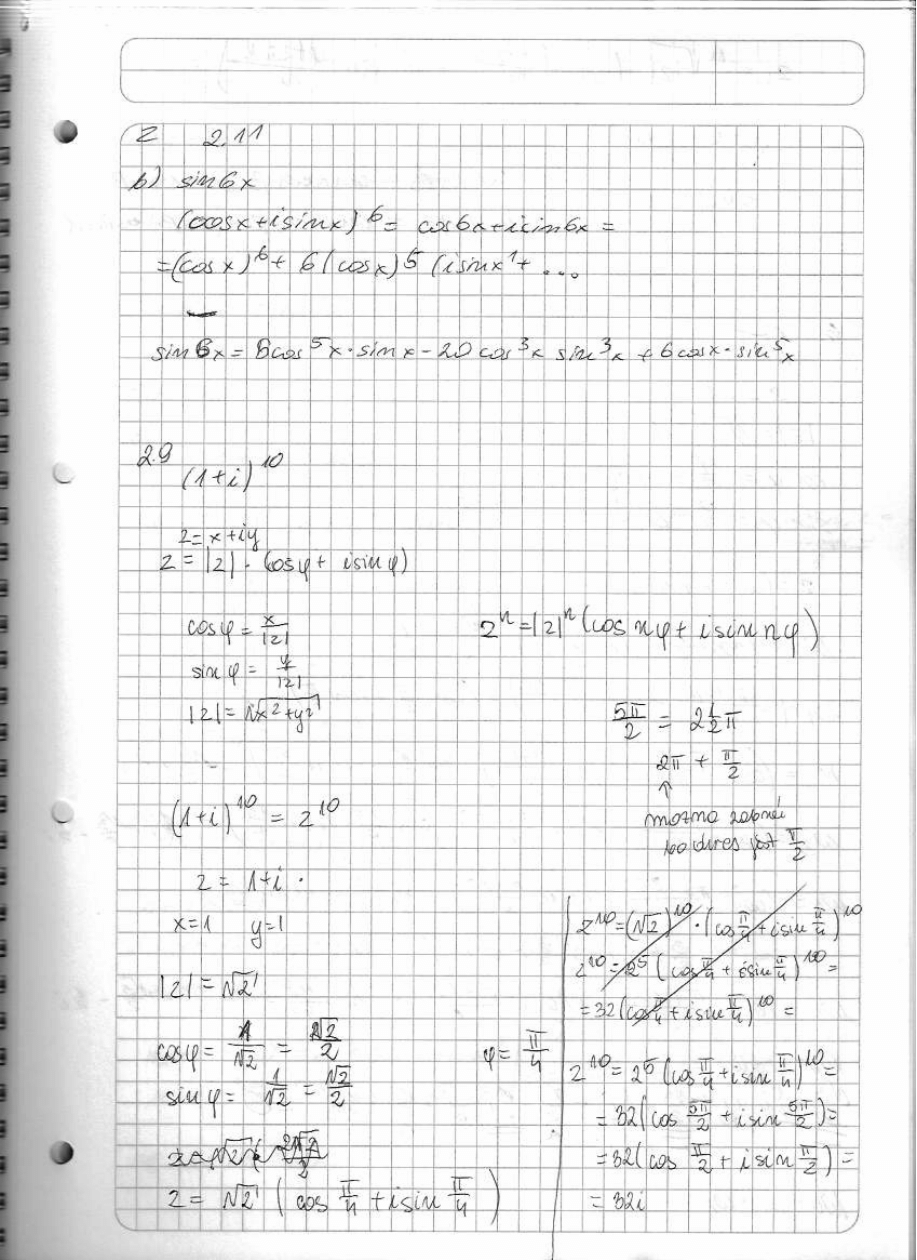 Z 2.11
b) sin6x
(cosx+isinx)^6 = cos6x+isin6x =
=(cosx)^6 + 6(cosx)^5 (isinx^1 + ...
sin6x = 6cos^5x·sinx - 20cos^3x sin^3x + 6cosx·sin^5x
2.9
(1+i)^10
z=x+iy
z = |z| · (cosφ + isinφ)
cosφ = x/|z|
sinφ = y/|z|
|z| = √x²+y²
z^n = |z|^n (cos nφ + isin nφ)
5π/2 = 2 1/2 π
2π + π/2
↑
można
okres jest π/2
(1+i)^10 = z^10
z = 1+i
x=1 y=1
|z| = √2
cosφ = 1/√2 = √2/2
sinφ = 1/√2 = √2/2
φ = π/4
z = √2 (cos π/4 + isin π/4)
z^10 = (√2)^10 · (cos π/4 + isin π/4)^10
z^10 = 2^5 (cos π/4 + isin π/4)^10 =
= 32(cos π/4 + isin π/4)^10 =
z^10 = 2^5 (cos π/4 + isin π/4)^10 =
= 32(cos 5π/2 + isin 5π/2) =
= 32(cos π/2 + isin π/2) =
= 32i